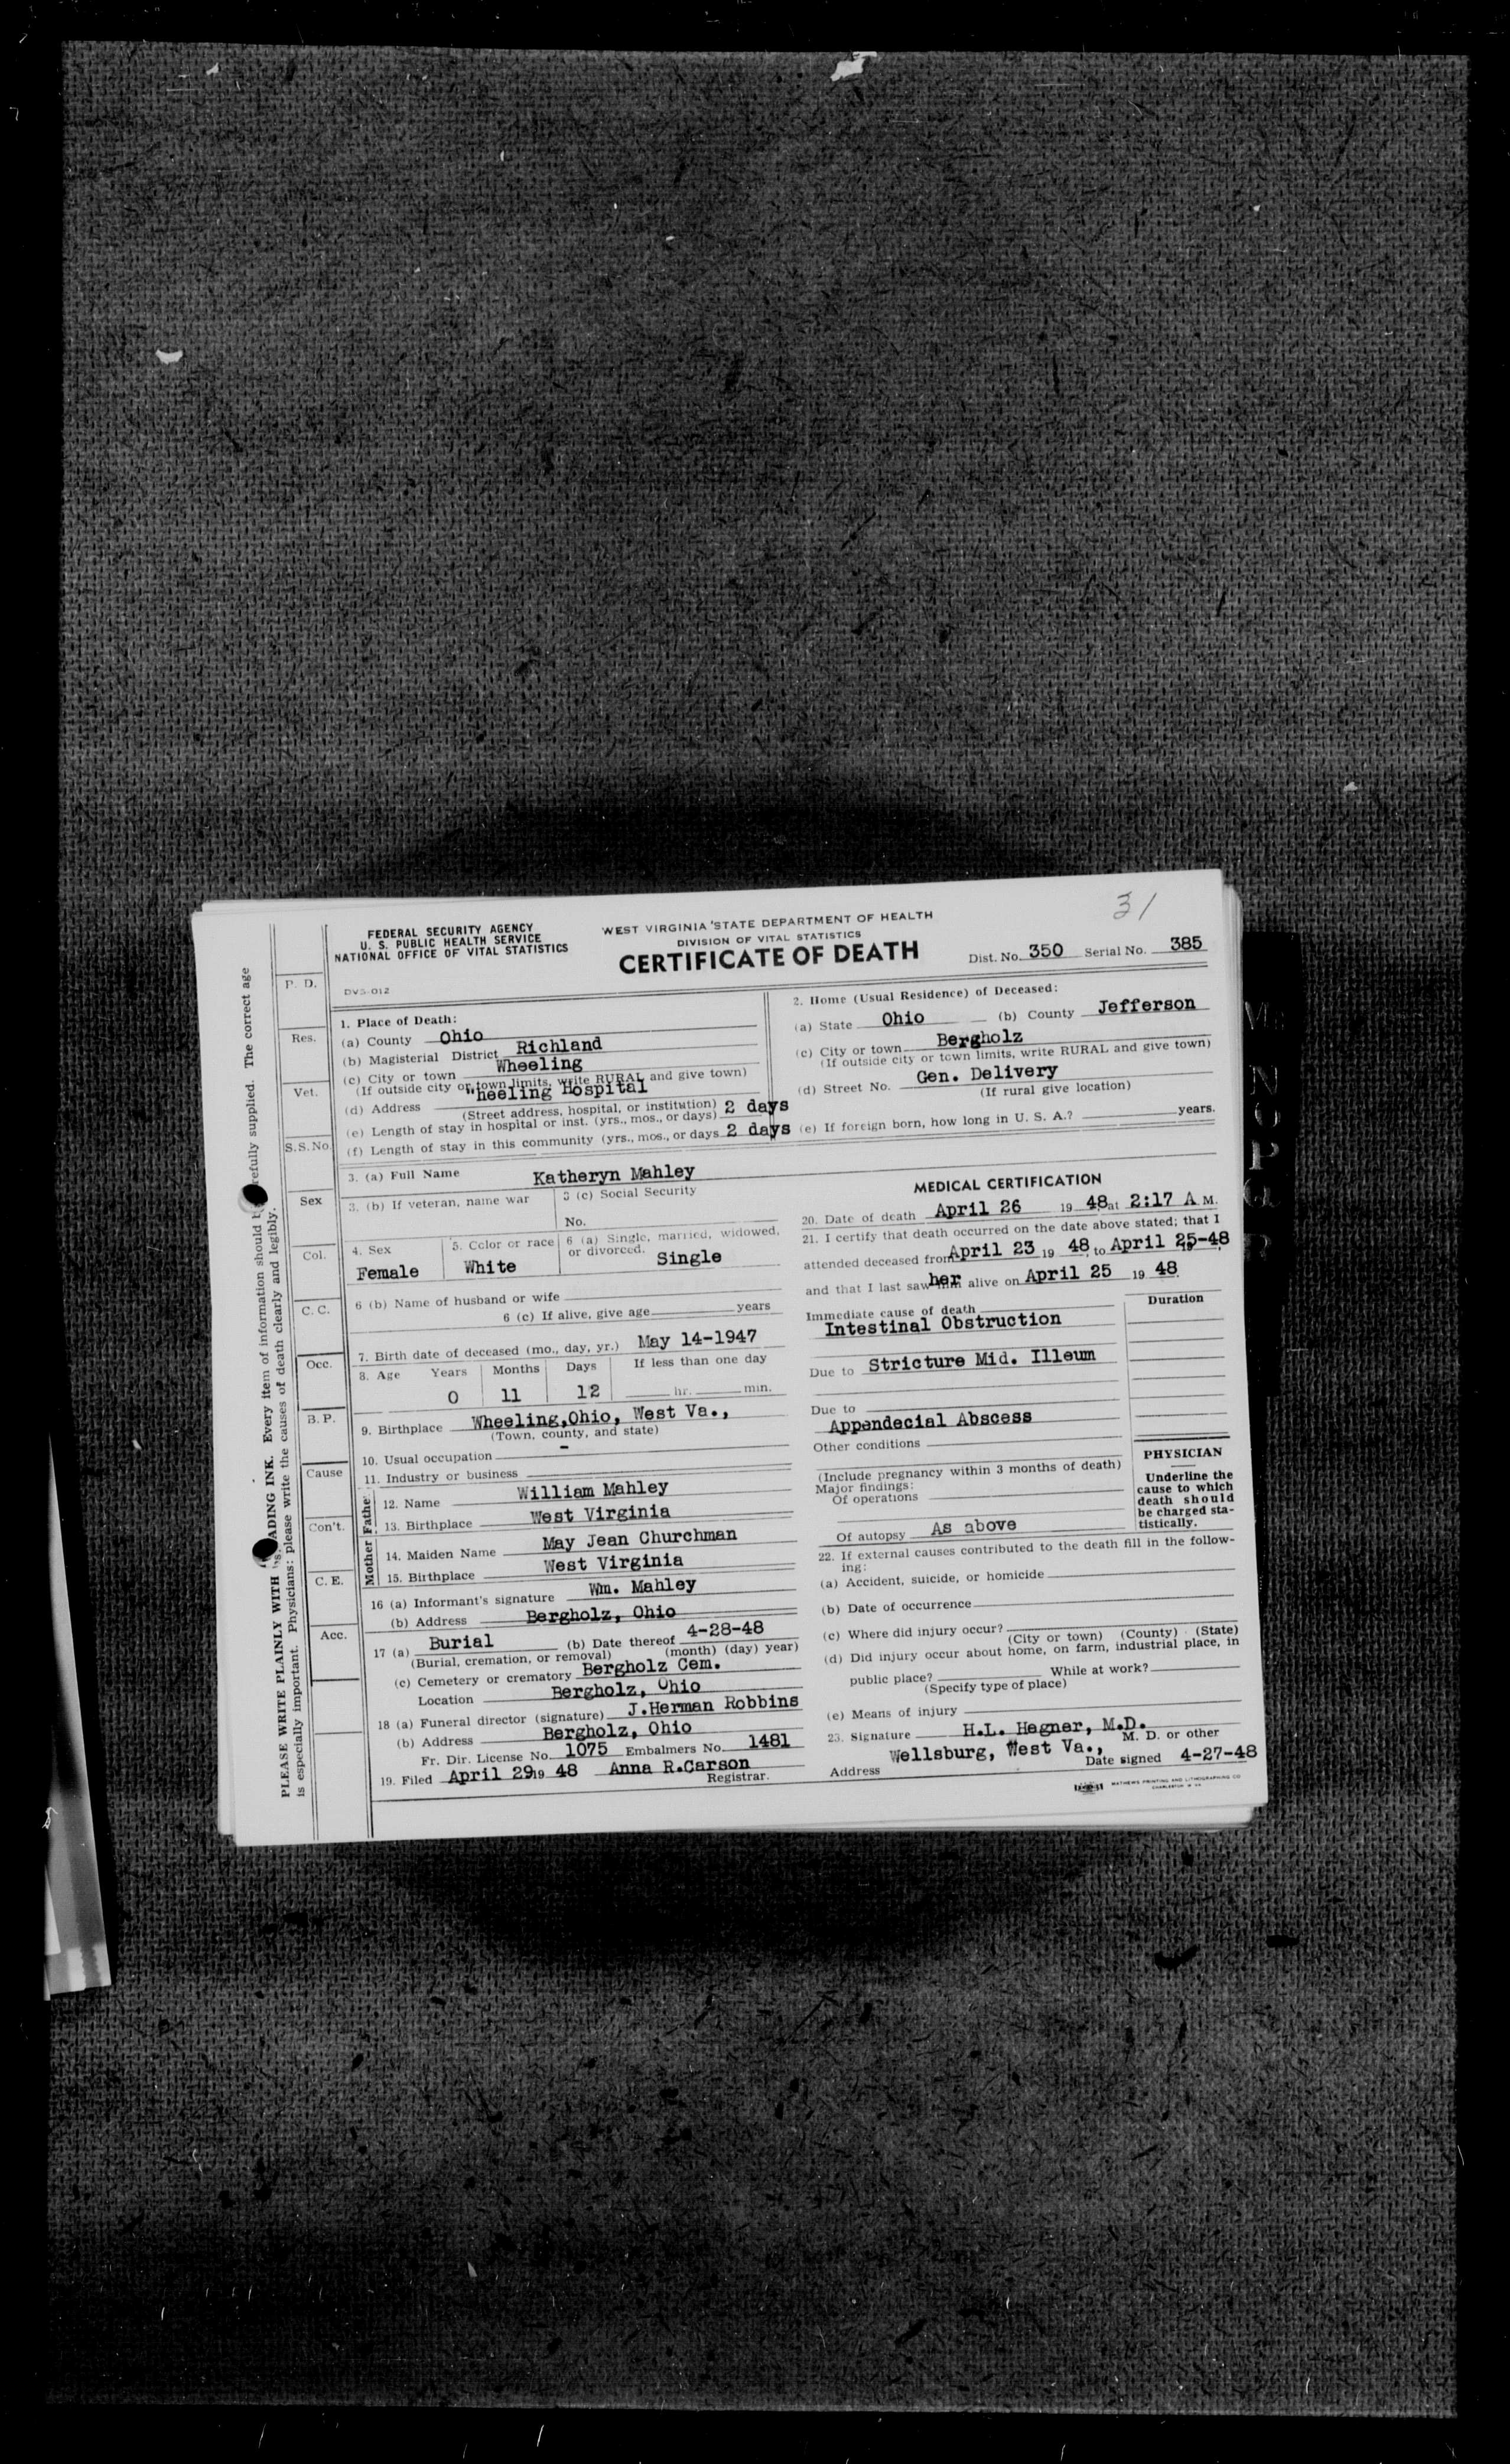 31
FEDERAL SECURITY AGENCY
U. S. PUBLIC HEALTH SERVICE
NATIONAL OFFICE OF VITAL STATISTICS
WEST VIRGINIA STATE DEPARTMENT OF HEALTH
DIVISION OF VITAL STATISTICS
CERTIFICATE OF DEATH
Dist. No. 350 Serial No. 385
DVS-012
PLEASE WRITE PLAINLY WITH ADING INK. Every item of information should refully supplied. The correct age
is especially important. Physicians: please write the causes of death clearly and legibly.
P. D.
Res.
Vet.
S.S.No.
Sex
Col.
C. C.
Occ.
B. P.
Cause
Con't.
C. E.
Acc.
1. Place of Death:
(a) County Ohio
(b) Magisterial District Richland
(c) City or town Wheeling
(If outside city or town limits, write RURAL and give town)
(d) Address Wheeling Hospital
(Street address, hospital, or institution)
(e) Length of stay in hospital or inst. (yrs., mos., or days) 2 days
(f) Length of stay in this community (yrs., mos., or days 2 days
2. Home (Usual Residence) of Deceased:
(a) State Ohio (b) County Jefferson
(c) City or town Bergholz
(If outside city or town limits, write RURAL and give town)
(d) Street No. Gen. Delivery
(If rural give location)
(e) If foreign born, how long in U. S. A.? years.
3. (a) Full Name Katheryn Mahley
3. (b) If veteran, name war
3 (c) Social Security
No.
4. Sex Female
5. Color or race White
6 (a) Single, married, widowed, or divorced. Single
6 (b) Name of husband or wife
6 (c) If alive, give age years
7. Birth date of deceased (mo., day, yr.) May 14-1947
8. Age Years Months Days If less than one day
0 11 12 hr. min.
9. Birthplace Wheeling,Ohio, West Va.,
(Town, county, and state)
10. Usual occupation -
11. Industry or business
Father
12. Name William Mahley
13. Birthplace West Virginia
Mother
14. Maiden Name May Jean Churchman
15. Birthplace West Virginia
16 (a) Informant's signature Wm. Mahley
(b) Address Bergholz, Ohio
17 (a) Burial (b) Date thereof 4-28-48
(Burial, cremation, or removal) (month) (day) year)
(c) Cemetery or crematory Bergholz Cem.
Location Bergholz, Ohio
18 (a) Funeral director (signature) J.Herman Robbins
(b) Address Bergholz, Ohio
Fr. Dir. License No. 1075 Embalmers No. 1481
19. Filed April 29 19 48 Anna R.Carson
Registrar.
MEDICAL CERTIFICATION
20. Date of death April 26 19 48 at 2:17 A M.
21. I certify that death occurred on the date above stated; that I
attended deceased from April 23 19 48, to April 25-48
and that I last saw her alive on April 25 19 48.
Immediate cause of death
Duration
Intestinal Obstruction
Due to Stricture Mid. Illeum
Due to
Appendecial Abscess
Other conditions
(Include pregnancy within 3 months of death)
Major findings:
Of operations
Of autopsy As above
PHYSICIAN
Underline the
cause to which
death should
be charged sta-
tistically.
22. If external causes contributed to the death fill in the follow-
ing:
(a) Accident, suicide, or homicide
(b) Date of occurrence
(c) Where did injury occur?
(City or town) (County) (State)
(d) Did injury occur about home, on farm, industrial place, in
public place? While at work?
(Specify type of place)
(e) Means of injury
23. Signature H.L. Hegner, M.D.
M. D. or other
Address Wellsburg, West Va.,
Date signed 4-27-48
MATHEWS PRINTING AND LITHOGRAPHING CO
CHARLESTON W VA